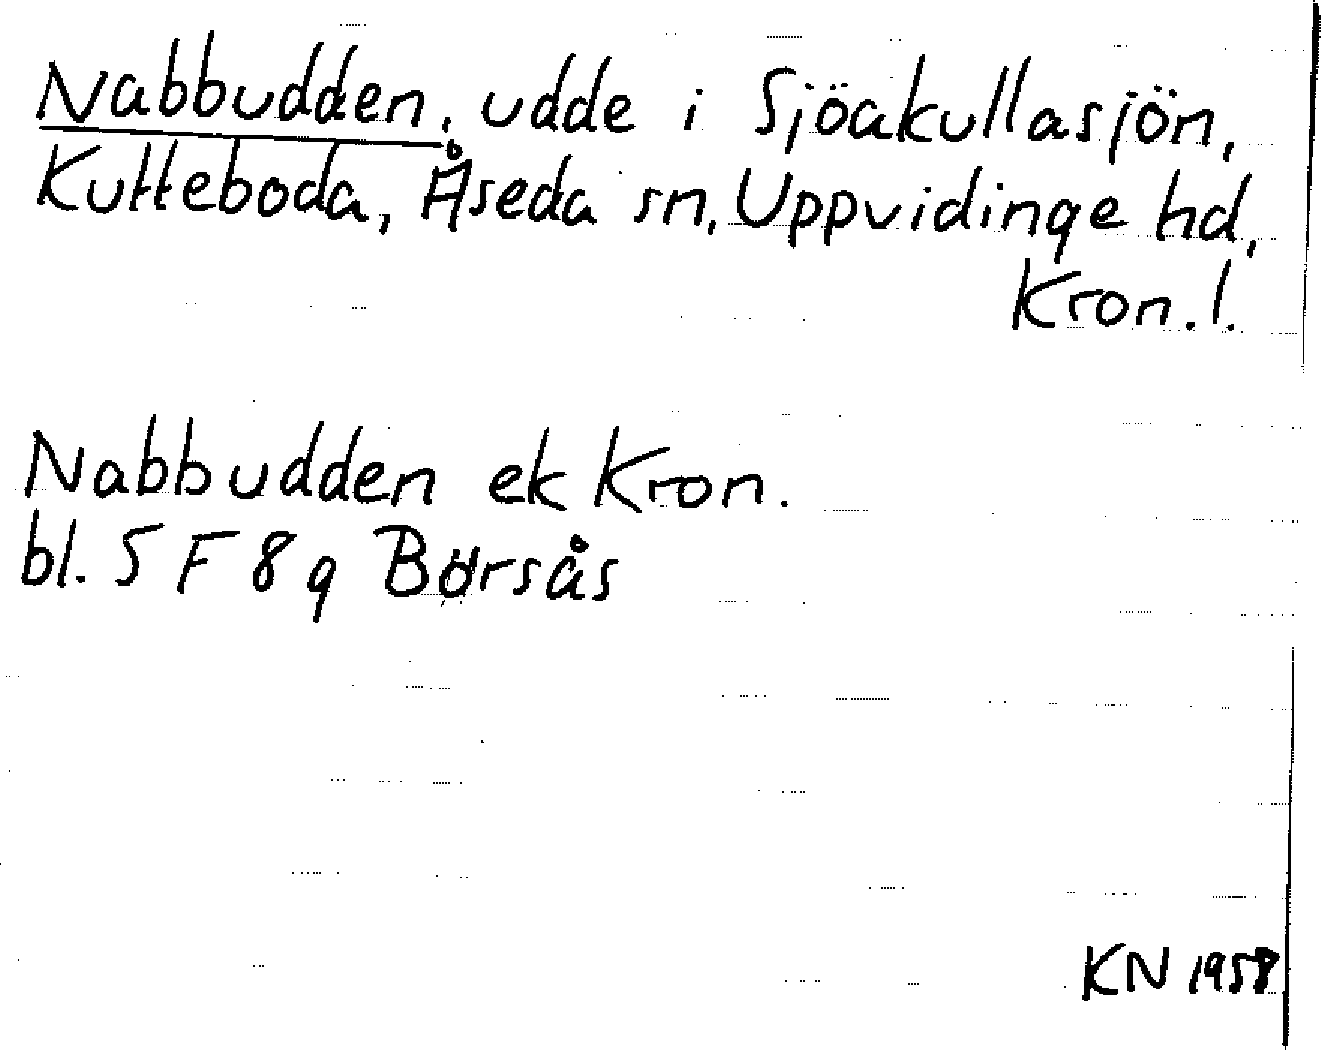 Nabbudden, udde i Sjöakullasjön,
Kutteboda, Åseda sn, Uppvidinge hd,
Kron. l.
Nabbudden ek Kron.
bl. 5 F 8 g Börsås
KN 1958